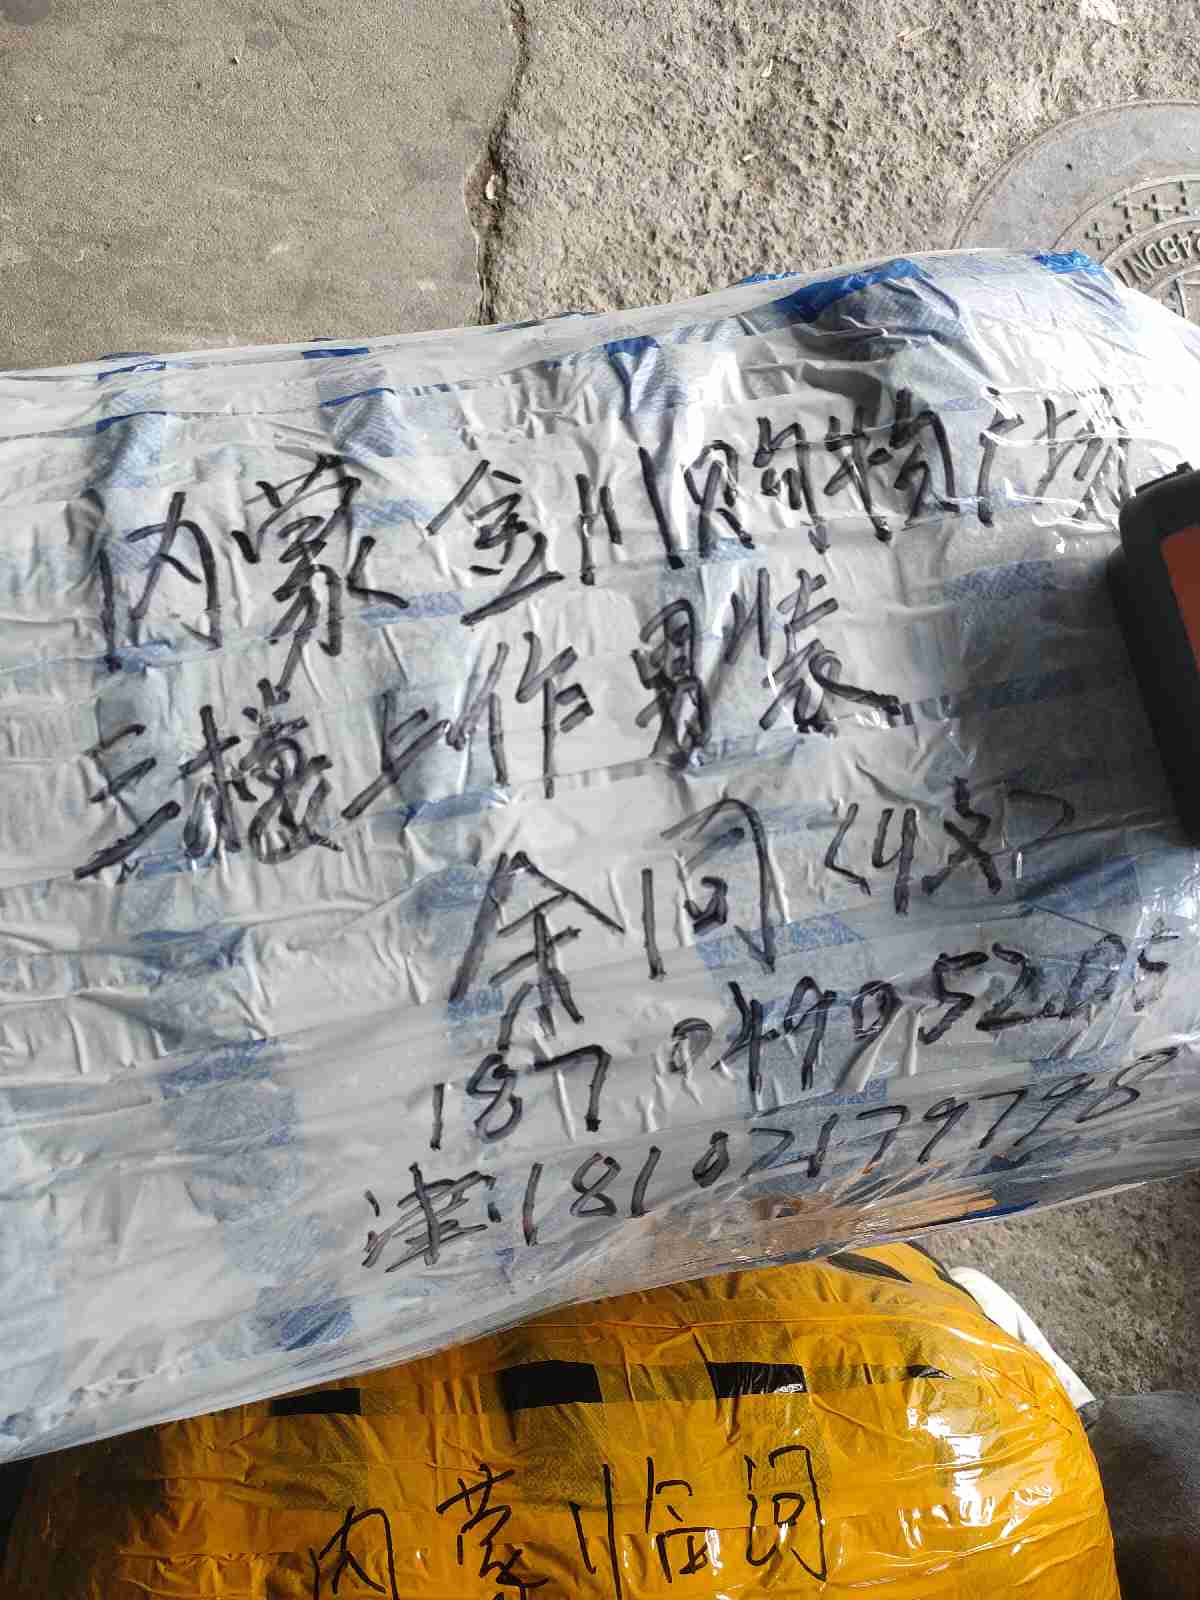 内蒙金川购物广场
三楼工作男装
余间 <4支>
18704905205
津:18102179798
内蒙临问